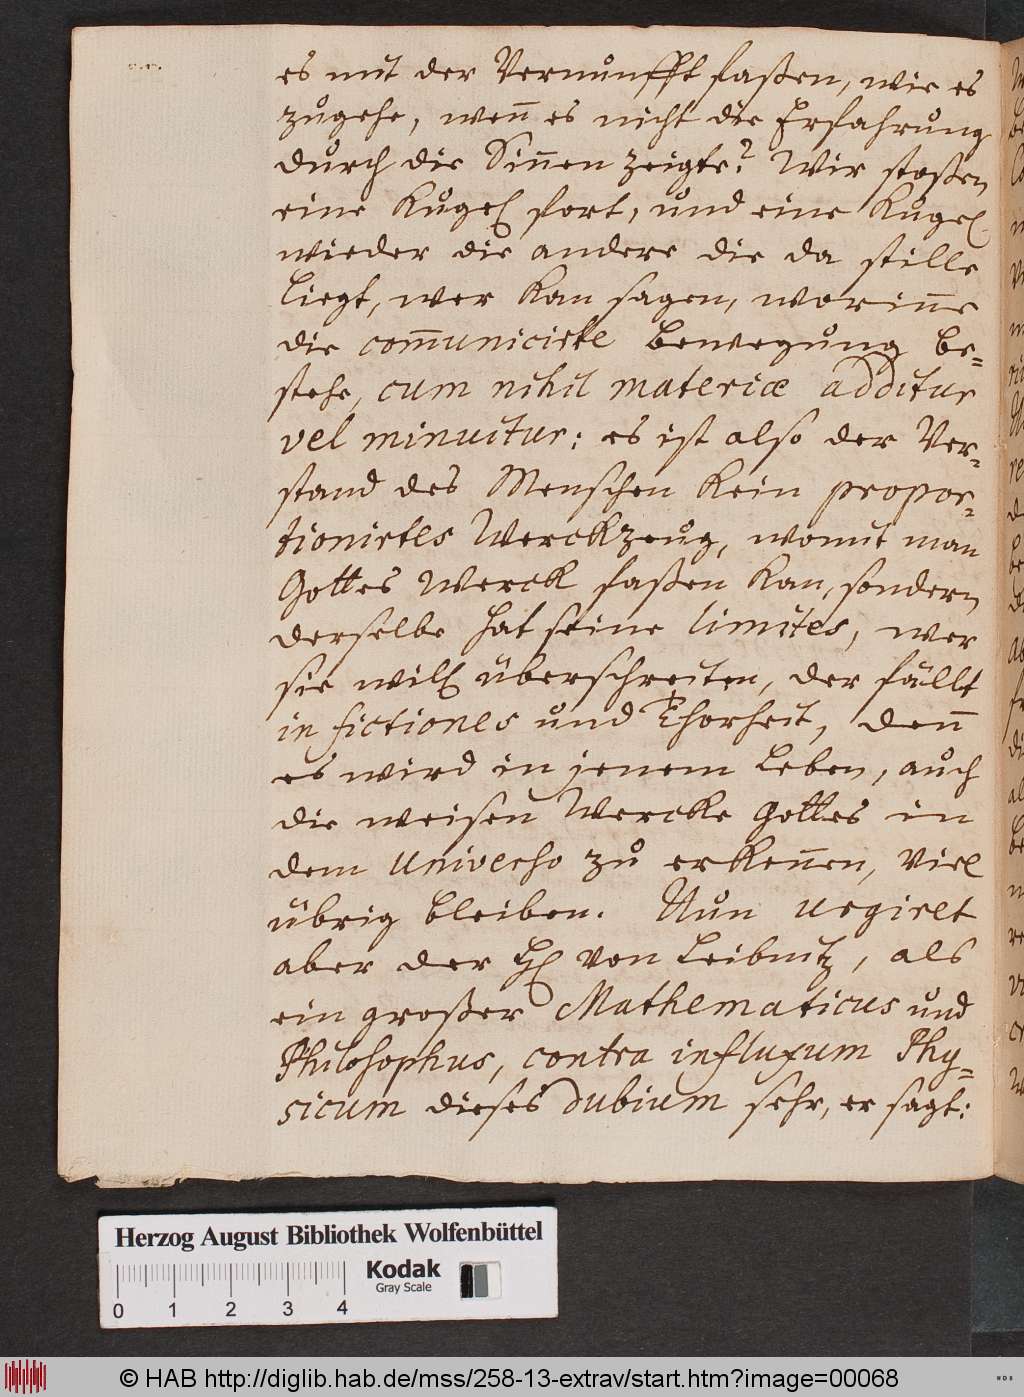 es mit der Vernunfft faßen, wie es
zugehe, weñ es nicht die Erfahrung
durch die Siñen zeigte? Wir stoßen
eine Kugel fort, und eine Kugel
wieder die andere die da stille
liegt, wer kan sagen, woriñe
die com̃unicirte Bewegung be=
stehe, cum nihil materiæ additur
vel minuitur; es ist also der Ver=
stand des Menschen kein propor=
tionirtes Werckzeug, womit man
Gottes Werck faßen kan, sondern
derselbe hat seine limites, wer
sie will überschreiten, der fällt
in fictiones und Thorheit, deñ
es wird in jenem Leben, auch
die weisen Wercke Gottes in
dem Universo zu erkeñen, viel
übrig bleiben. Nun urgiret
aber der H von Leibnitz, als
ein großer Mathematicus und
Philosophus, contra influxum Phy=
sicum dieses dubium sehr, er sagt:
Herzog August Bibliothek Wolfenbüttel
Kodak
Gray Scale
0 1 2 3 4
© HAB http://diglib.hab.de/mss/258-13-extrav/start.htm?image=00068